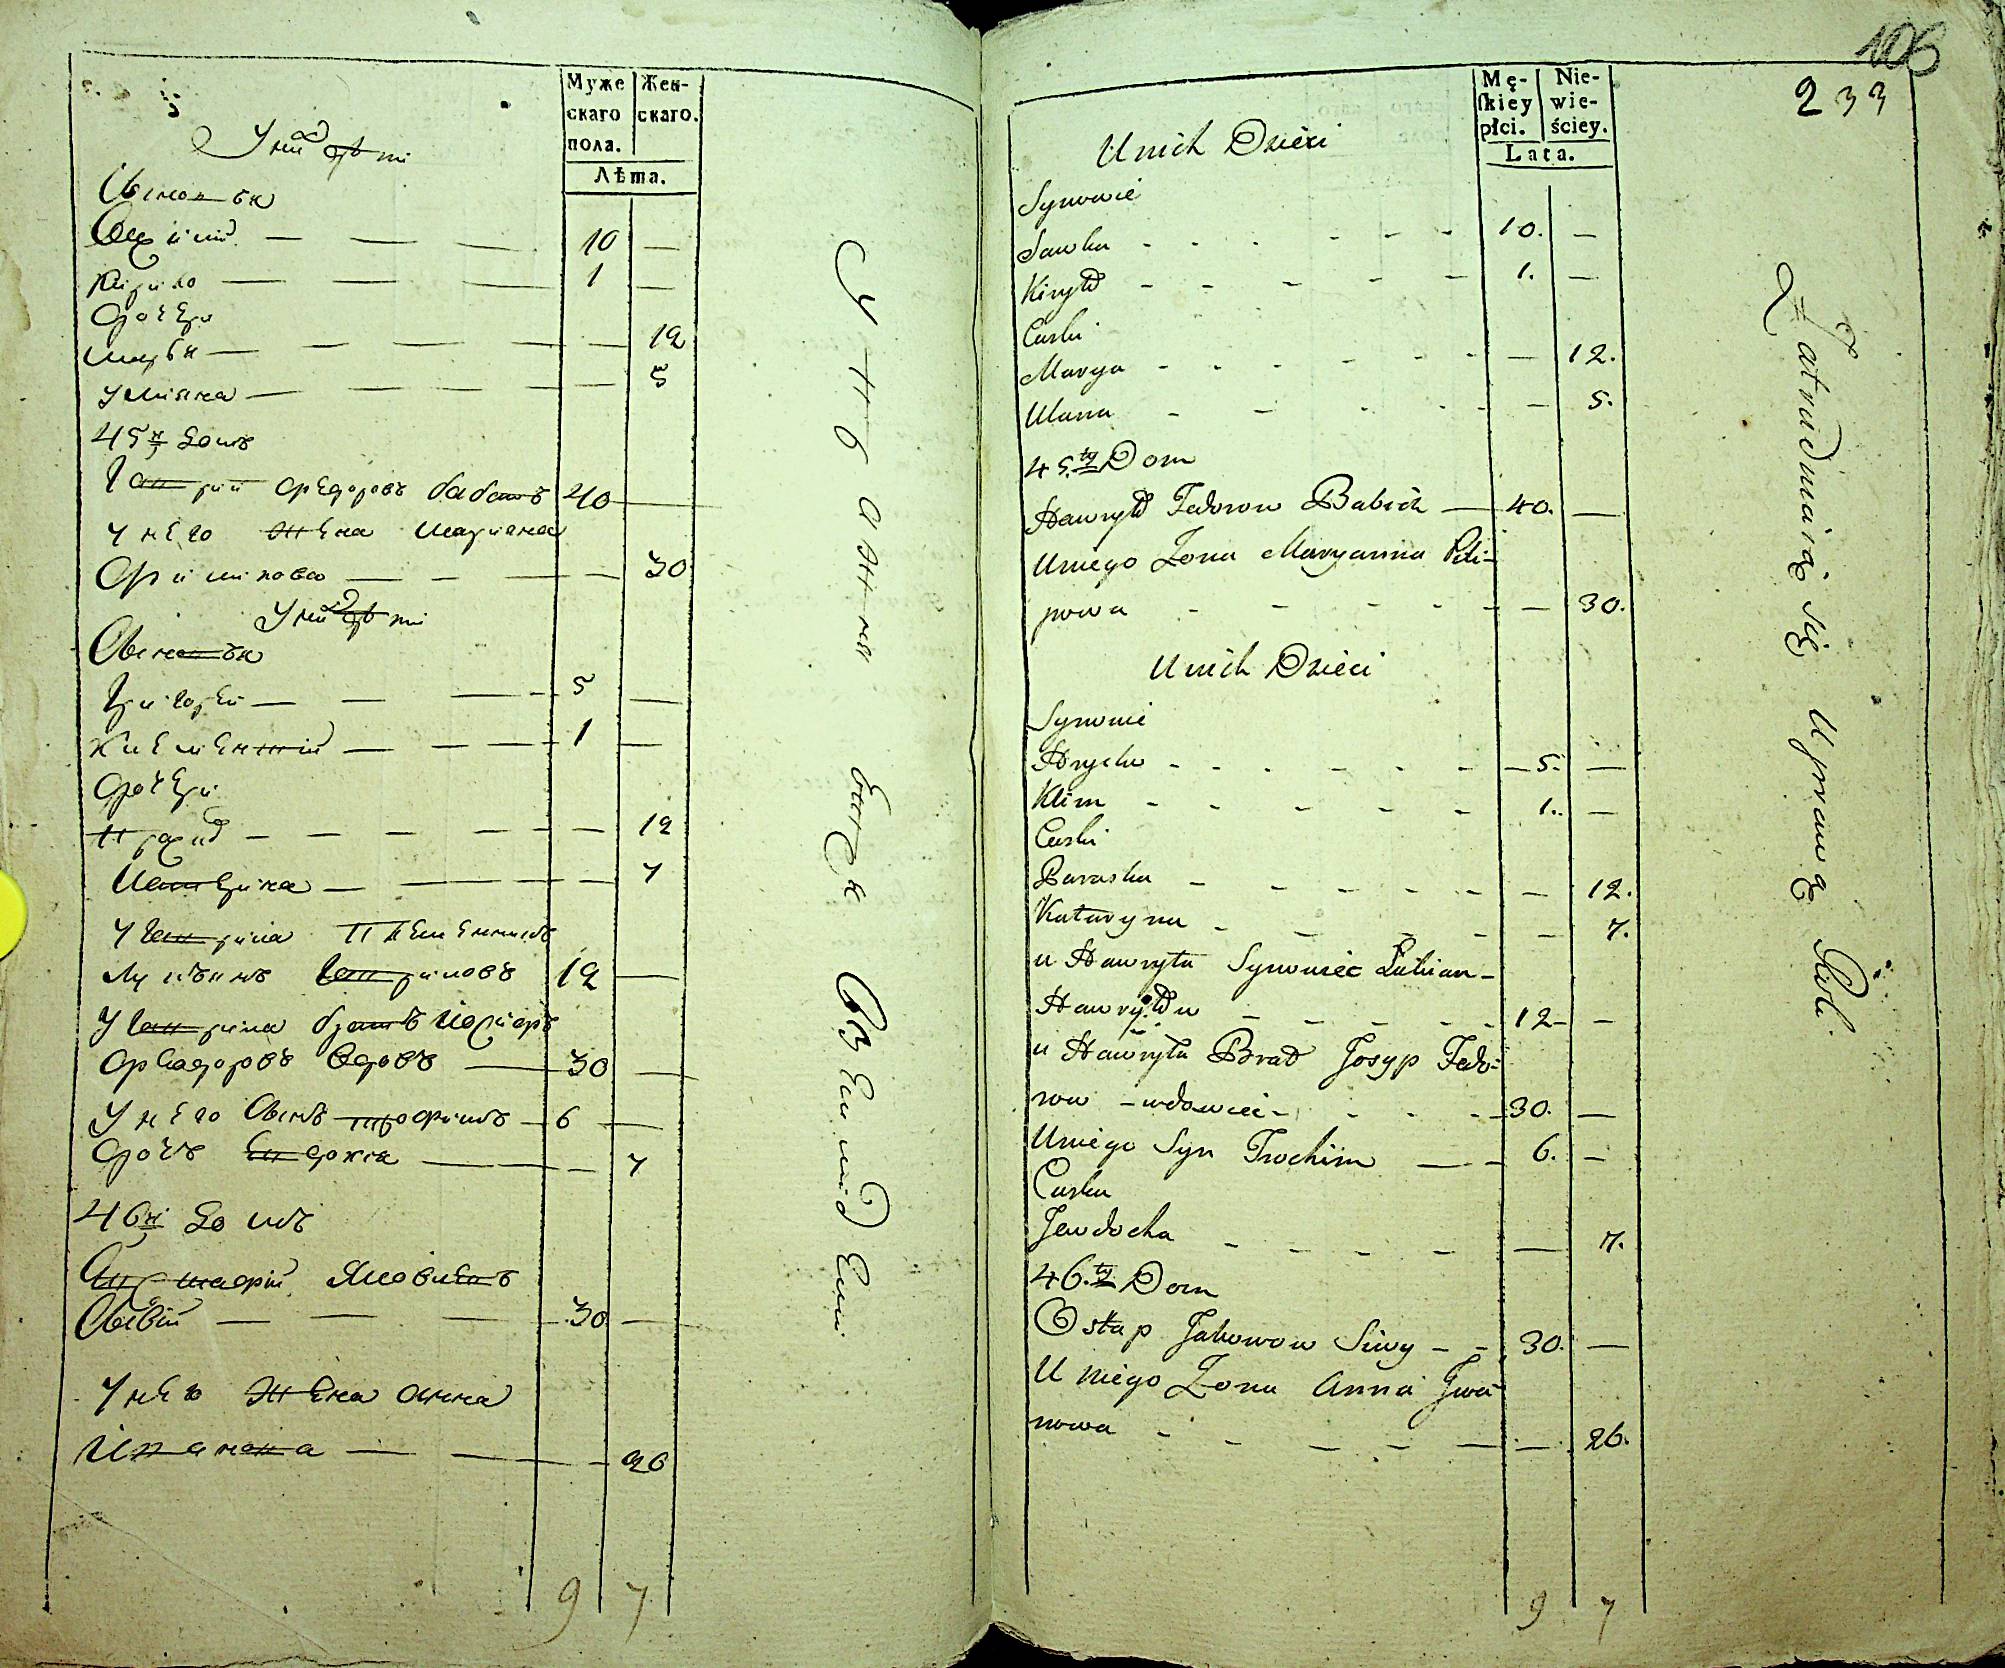 Муже Жен-
скаго скаго.
пола.
Лѣта.
У них дѣти
Сыновья
10 —
Кирило — 1 —
Дочери
Марья — — 12
Уляна — — 5
45й Домъ
Гаврило Федоровъ Бабичъ 40 —
У него жена Марьяна
Филипова — — 30
У них дѣти
Сыновья
Григорей — 5 —
Климентій — 1 —
Дочери
— 12
Катерина — — 7
У Гаврила племенникъ
Лукьянъ Гавриловъ 12 —
У Гаврила братъ Иосифъ
Федоровъ вдовъ — 30 —
У него сынъ Трофимъ — 6 —
Дочь Евдокия — — 7
46й Домъ
Яковлевъ
Сивый — 30 —
У него жена Анна
Иванова — — 26
9 7
Упражняются
106
233
Mę- Nie-
skiey wie-
płci. ściey.
Lata.
U nich Dzieci
Synowie
Sawka - - - 10. —
Kiryło - - - 1. —
Curki
Marya - - - — 12.
Ulana - - - — 5.
45.ty Dom
Hawryło Fedorow Babicz — 40. —
U niego Żona Maryanna Pili-
powa - - - — 30.
U nich Dzieci
Synowie
Hryćko - - - 5. —
Klim - - - 1. —
Curki
Paraska - - - — 12.
Kataryna - - - — 7.
u Hawryła Synowiec Łukian
Hawryłow - - - 12 —
u Hawryła Brat Josyp Fedo-
row - wdowiec - - - 30. —
U niego Syn Trochim — 6. —
Curka
Jewdocha - - - — 7.
46.ty Dom
Ostap Jakowow Siwy - - 30. —
U niego Żona Anna Jwa-
nowa - - - — 26.
9 7
Zatrudniaią się Uprawą Roli.